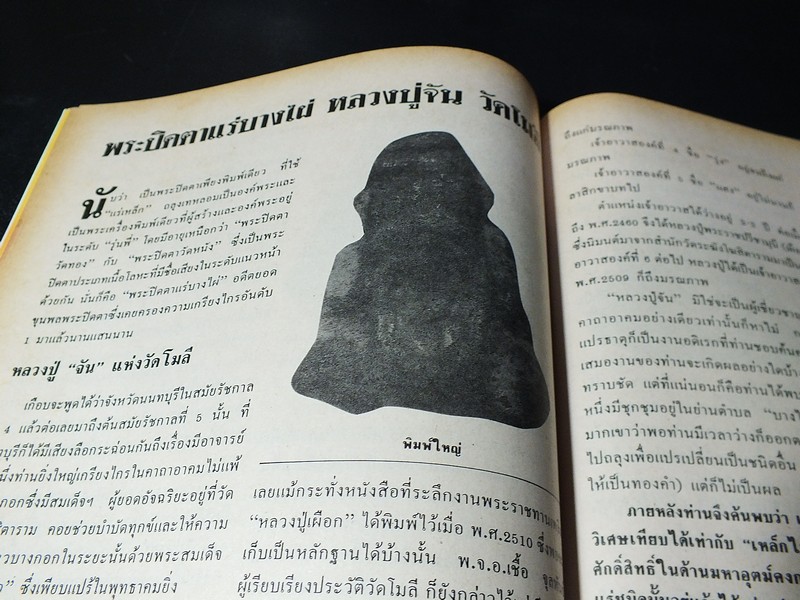 พระปิดตาแร่บางไผ่ หลวงปู่จัน วัดโม
นับว่า เป็นพระปิดตาเพียงพิมพ์เดียว ที่ใช้
"แร่เหล็ก" ถลุงเทหลอมเป็นองค์พระและ
เป็นพระเครื่องพิมพ์เดียวที่ผู้สร้างและองค์พระอยู่
ในระดับ "รุ่นพี่" โดยมีอายุเหนือกว่า "พระปิดตา
วัดทอง" กับ "พระปิดตาวัดหนัง" ซึ่งเป็นพระ
ปิดตาประเภทเนื้อโลหะที่มีชื่อเสียงในระดับแนวหน้า
ด้วยกัน นั่นก็คือ "พระปิดตาแร่บางไผ่" อดีตยอด
ขุนพลพระปิดตาซึ่งเคยครองความเกรียงไกรอันดับ
1 มาแล้วนานแสนนาน
หลวงปู่ "จัน" แห่งวัดโมลี
เกือบจะพูดได้ว่าจังหวัดนนทบุรีในสมัยรัชกาล
4 แล้วต่อเลยมาถึงต้นสมัยรัชกาลที่ 5 นั้น ที่
บุรีก็ได้มีเสียงลือกระฉ่อนกันถึงเรื่องมีอาจารย์
นึ่งท่านยิ่งใหญ่เกรียงไกรในคาถาอาคมไม่แพ้
กอกซึ่งมีสมเด็จฯ ผู้ยอดอัจฉริยะอยู่ที่วัด
ิตาราม คอยช่วยบำบัดทุกข์และให้ความ
วบางกอกในระยะนั้นด้วยพระสมเด็จ
" ซึ่งเพียบแปร้ในพุทธาคมยิ่ง
พิมพ์ใหญ่
เลยแม้กระทั่งหนังสือที่ระลึกงานพระราชทาน
"หลวงปู่เผือก" ได้พิมพ์ไว้เมื่อ พ.ศ.2510 ซึ่ง
เก็บเป็นหลักฐานได้บ้างนั้น พ.จ.อ.เชื้อ
ผู้เรียบเรียงประวัติวัดโมลี ก็ยังกล่าวไว้
ถึงแก่มรณภาพ
เจ้าอาวาสองค์ที่ 4 ชื่อ
มรณภาพ
เจ้าอาวาสองค์ที่ 5 ชื่อ
ลาสิกขาบทไป
ตำแหน่งเจ้าอาวาสได้ว่างอยู่ 2-3 ปี
ถึง พ.ศ.2460 จึงได้หลวงปู่
ซึ่งนิมนต์มาจากสำนักวัดระฆังโฆสิตาราม
อาวาสองค์ที่ 6 ต่อไป หลวงปู่ได้เป็นเจ้าอาวาส
พ.ศ.2509 ก็ถึงมรณภาพ
"หลวงปู่จัน" มิใช่จะเป็นผู้เชี่ยวชาญ
คาถาอาคมอย่างเดียวเท่านั้นก็หาไม่
แปรธาตุก็เป็นงานอดิเรกที่ท่านชอบค้น
เสมองานของท่านจะเกิดผลอย่างใดบ้าง
ทราบชัด แต่ที่แน่นอนก็คือท่านได้พบ
หนึ่งมีชุกชุมอยู่ในย่านตำบล "บาง
มากเขาว่าพอท่านมีเวลาว่างก็ออก
ไปถลุงเพื่อแปรเปลี่ยนเป็นชนิดอื่น
ให้เป็นทองคำ) แต่ก็ไม่เป็นผล
ภายหลังท่านจึงค้นพบว่า
วิเศษเทียบได้เท่ากับ "เหล็กไ
ศักดิ์สิทธิ์ในด้านมหาอุตม์คงก